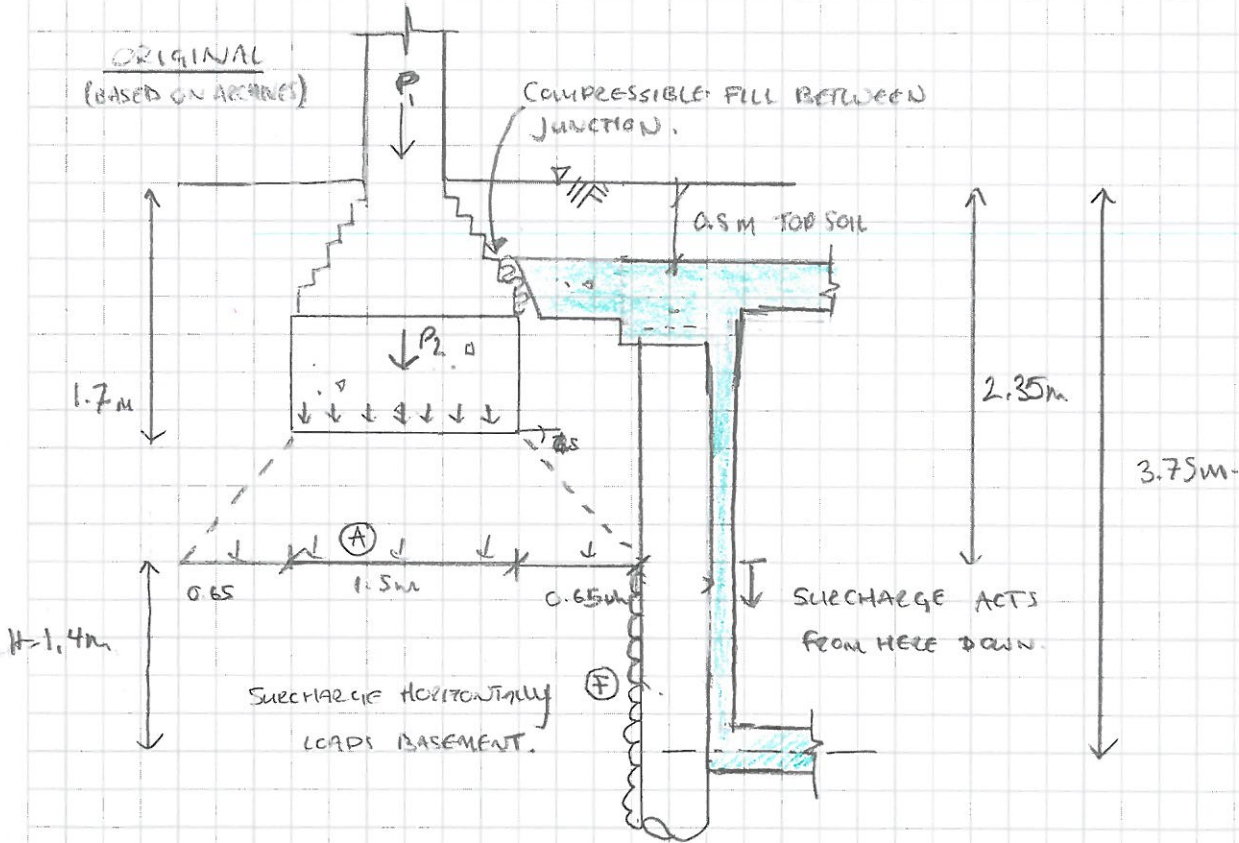 ORIGINAL
(BASED ON ARCHIVES)
P1
COMPRESSIBLE FILL BETWEEN
JUNCTION.
0.5M TOP SOIL
P2
1.7M
2.35m
3.75m
A
0.65
1.5m
0.65m
H=1.4m
SURCHARGE ACTS
FROM HERE DOWN.
SURCHARGE HORIZONTALLY
LOADS BASEMENT.
F